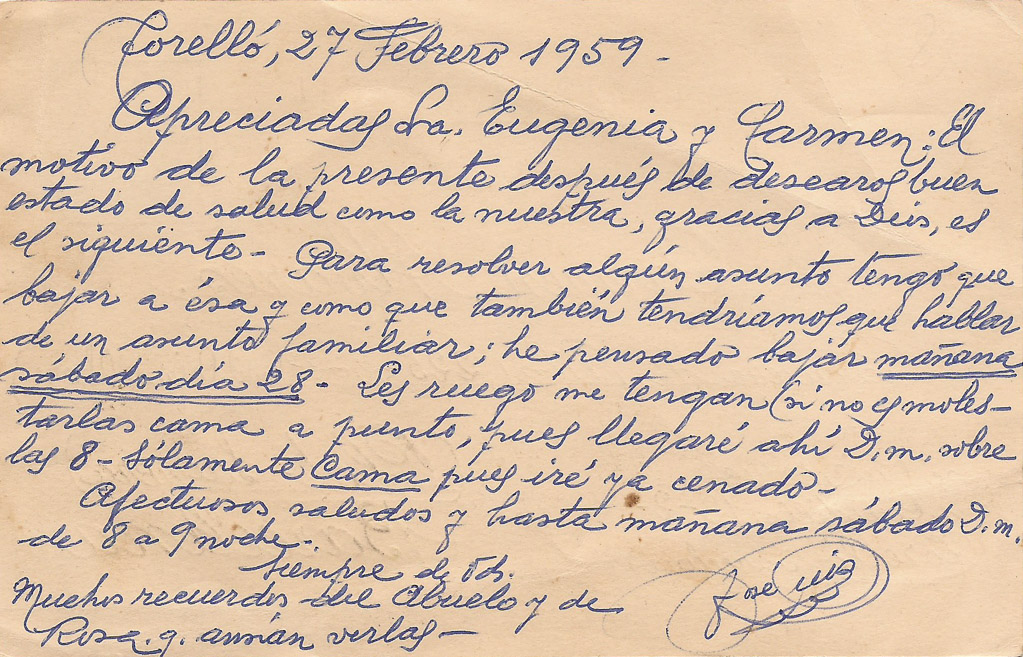 Torelló, 27 Febrero 1959.-
Apreciadas Sra. Eugenia y Carmen: El
motivo de la presente después de desearos buen
estado de salud como la nuestra, gracias a Dios, es
el siguiente- Para resolver algún asunto tengo que
bajar a ésa y como que también tendríamos que hablar
de un asunto familiar; he pensado bajar mañana
sábado día 28- Les ruego me tengan (si no es moles-
tarlas cama a punto, pues llegaré ahí D.m. sobre
las 8- Sólamente Cama pues iré ya cenado-
Afectuosos saludos y hasta mañana sábado D.m.
de 8 a 9 noche-.
Siempre de Vds.
José Luis
Muchos recuerdos del Abuelo y de
Rosa. q. ansían verlas-